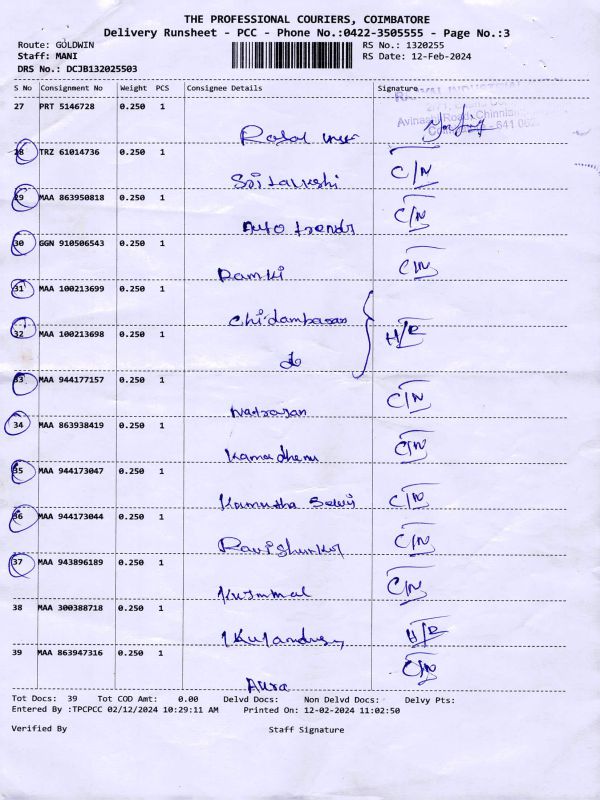 THE PROFESSIONAL COURIERS, COIMBATORE
Delivery Runsheet - PCC - Phone No.:0422-3505555 - Page No.:3
Route: GOLDWIN RS No.: 1320255
Staff: MANI RS Date: 12-Feb-2024
DRS No.: DCJB132025503
S No Consignment No Weight PCS Consignee Details Signature
27 PRT 5146728 0.250 1
28 TRZ 61014736 0.250 1 C/N
29 MAA 863950818 0.250 1 C/N
Auto trends
30 GGN 910506543 0.250 1 C/N
Ramki
31 MAA 100213699 0.250 1
Chidambaram
32 MAA 100213698 0.250 1 H/R
33 MAA 944177157 0.250 1 C/N
Natrasan
34 MAA 863938419 0.250 1 C/N
Kamadhenu
35 MAA 944173047 0.250 1 C/N
36 MAA 944173044 0.250 1 C/N
37 MAA 943896189 0.250 1 C/N
38 MAA 300388718 0.250 1 H/R
39 MAA 863947316 0.250 1 C/N
Aura
Tot Docs: 39 Tot COD Amt: 0.00 Delvd Docs: Non Delvd Docs: Delvy Pts:
Entered By :TPCPCC 02/12/2024 10:29:11 AM Printed On: 12-02-2024 11:02:50
Verified By Staff Signature